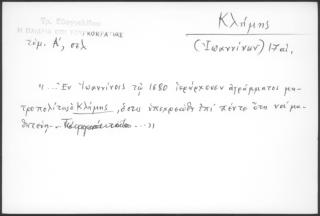 Τρ. Εὐαγγελίδου
Η ΠΑΙΔΕΙΑ ΕΠΙ ΤΟΥΡΚΟΚΡΑΤΙΑΣ
τόμ. Α', σελ
Κλήμης
(Ἰωαννίνων) 17 αἰ.
"... Ἐν Ἰωαννίνοις τῷ 1680 ἱεράρχευεν ἀγράμματος μη-
τροπολίτης ὁ Κλήμης, ὅστις ὑπεχρεώθη ἐπὶ πέντε ἔτη νὰ μα-
θητεύσῃ ... "